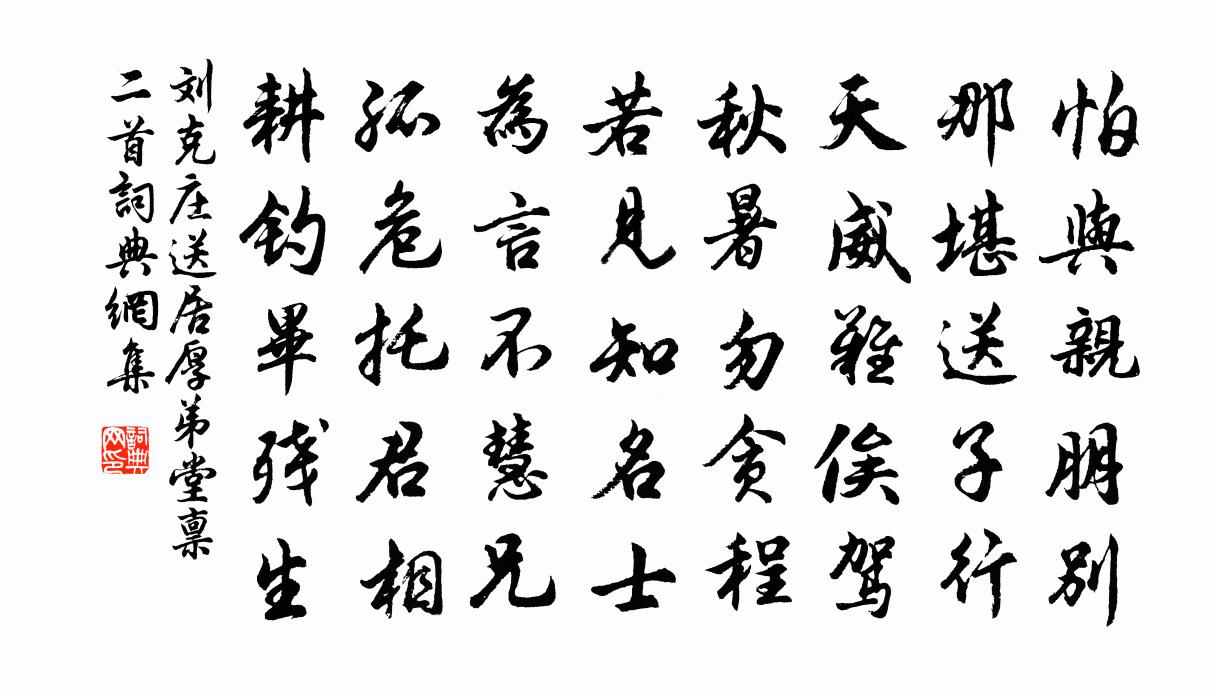 怕與親朋別
那堪送子行
天威難俟駕
秋暑勿貪程
若見知名士
為言不慧兄
孤危托君相
耕钓畢残生
刘克庄送居厚弟堂禀
二首詞典網集
詞典网印